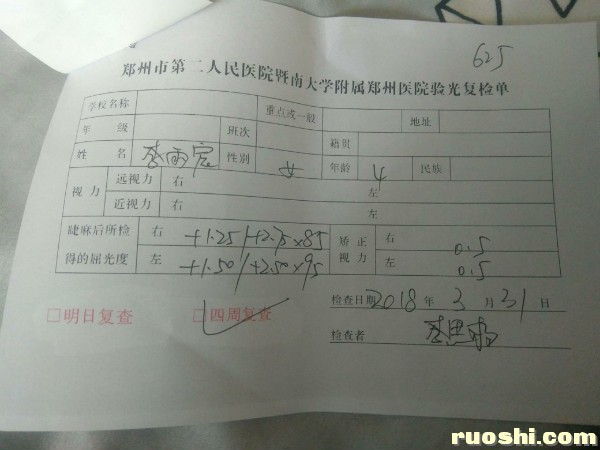 625
郑州市第二人民医院暨南大学附属郑州医院验光复检单
学校名称 重点或一般 地址
年 级 班次 籍贯
姓 名 李雨宸 性别 女 年龄 4 民族
视力 远视力 右 左
近视力 右 左
睫麻后所检得的屈光度 右 +1.25/+2.75×85 矫正视力 右 0.5
左 +1.50/+2.50×95 左 0.5
检查日期 2018 年 3 月 31 日
□明日复查 □四周复查
检查者
ruoshi.com